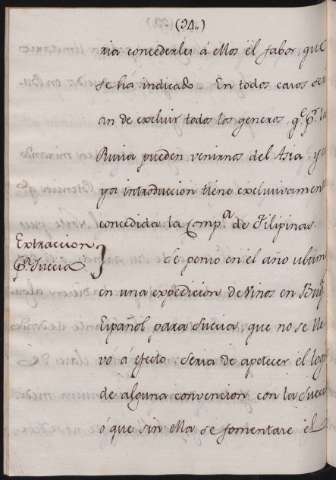 (34.)
ria concederles á ellos el fabor que
se ha indicado. En todos casos se
an de excluir todos los generos qe. pr. la
Rusia pueden venirnos del Asia, y
ya introduccion tiene exclusivament
concedida la Compa. de Filipinas.
Extraccion
Pa. Suecia
Se penso en el año ultimo
en una expedicion de Vinos en Buq
Español para Suecia, que no se lle
vó á efecto. Seria de apetecer el logro
de alguna convencion con la Suecia
ó que sin ella se fomentare el